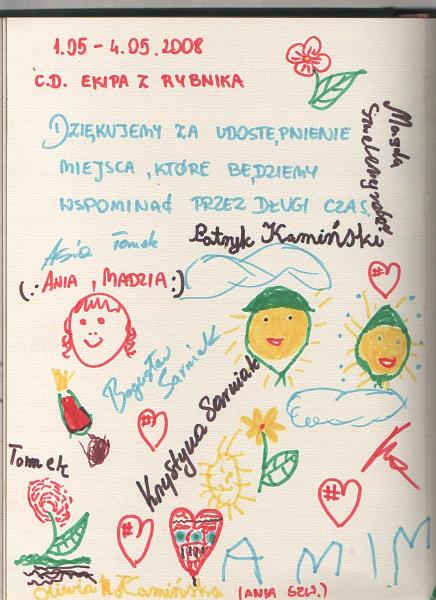 1.05 - 4.05.2008
C.D. EKIPA Z RYBNIKA
DZIĘKUJEMY ZA UDOSTĘPNIENIE
MIEJSCA, KTÓRE BĘDZIEMY
WSPOMINAĆ PRZEZ DŁUGI CZAS.
Magda
Asia Tomek
Patryk Kamiński
(.: ANIA, MADZIA :)
Bogusław
Sarniak
Krystyna Sarniak
Tomek
AMIM
Oliwia M. Kamińska (ANIA SZW.)